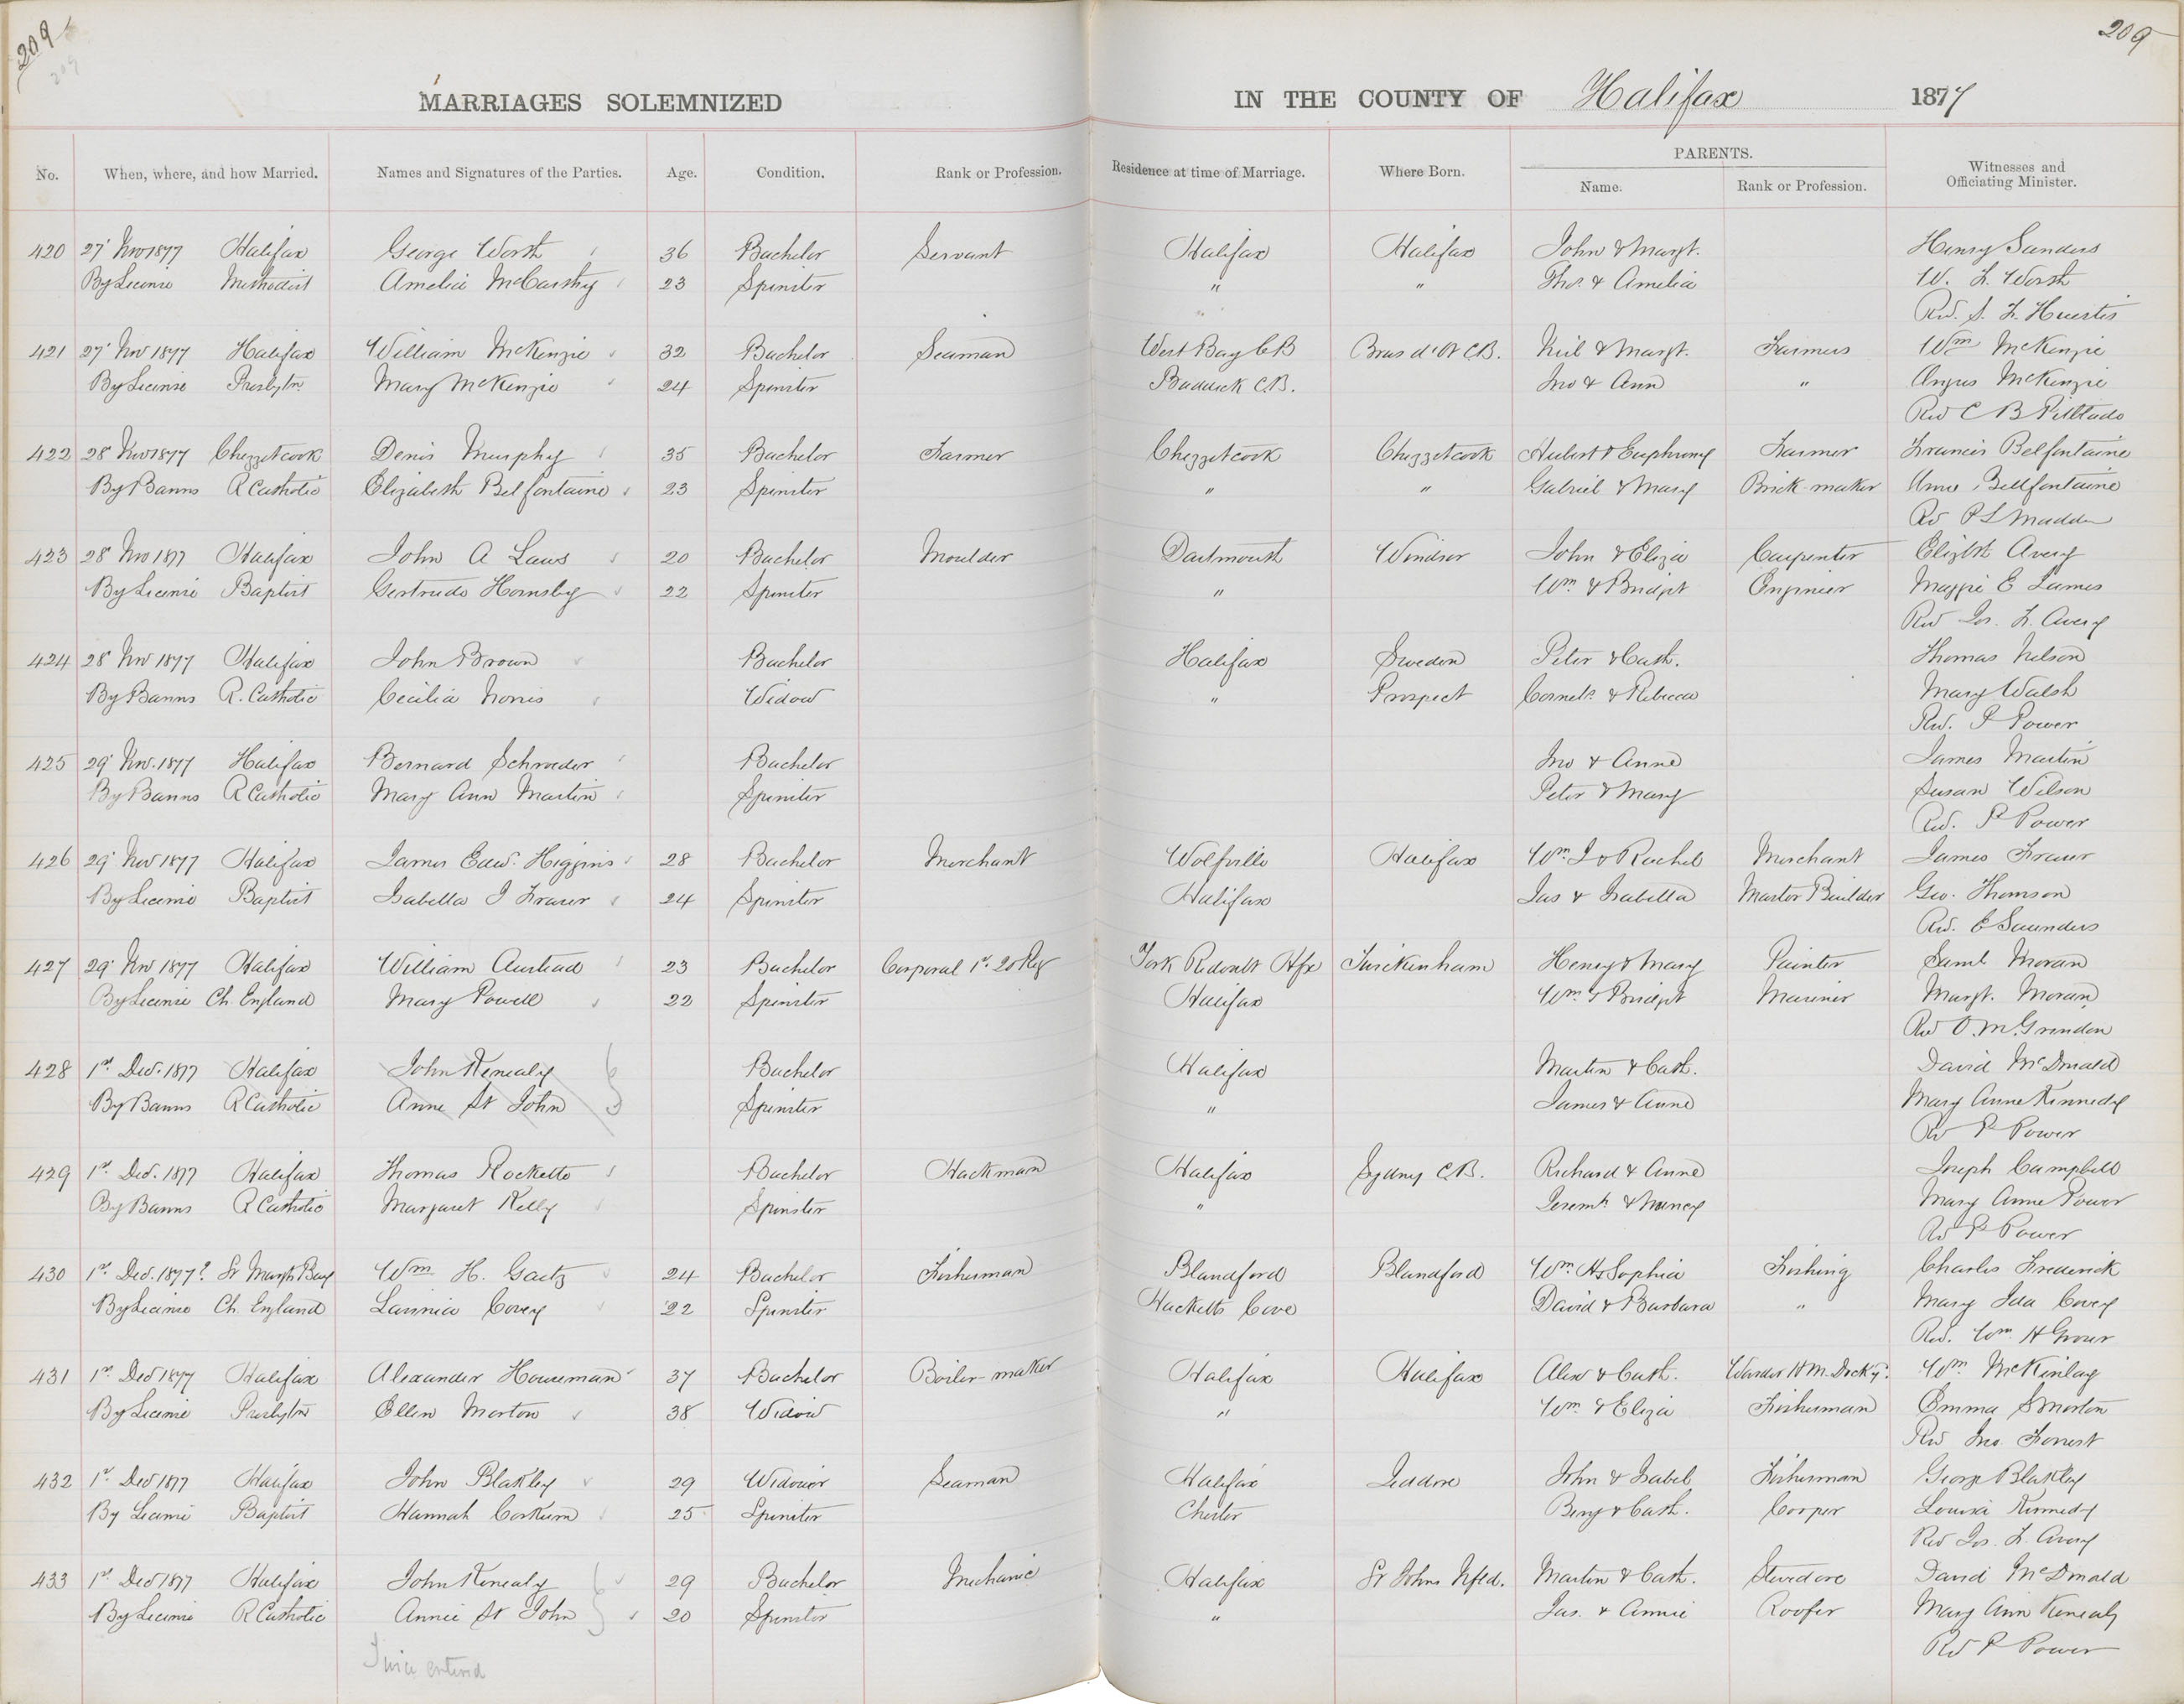 209
209
209
MARRIAGES SOLEMNIZED IN THE COUNTY OF Halifax 1877
No. When, where, and how Married. Names and Signatures of the Parties. Age. Condition. Rank or Profession. Residence at time of Marriage. Where Born. PARENTS. Name. Rank or Profession. Witnesses and Officiating Minister.
420 27' Nov 1877 Halifax George Worth 36 Bachelor Servant Halifax Halifax John & Margt. Henry Sanders
By Licence Methodist Amelia McCarthy 23 Spinster " " Thos. & Amelia W. L. Worth
Rev. S. F. Huestis
421 27' Nov 1877 Halifax William McKenzie 32 Bachelor Seaman West Bay CB Bras d'Or C.B. Neil & Margt. Farmers Wm McKenzie
By License Presbytn Mary McKenzie 24 Spinster Baddeck C.B. Jno & Ann " Angus McKenzie
Rev C B Pitblado
422 28' Nov 1877 Chezzetcook Denis Murphy 35 Bachelor Farmer Chezzetcook Chezzetcook Hubert & Euphromy Farmer Francis Belfontaine
By Banns R Catholic Elizabeth Belfontaine 23 Spinster " " Gabriel & Mary Brick-maker Anne Bellfontaine
Rev P L Madden
423 28' Nov 1877 Halifax John A Laws 20 Bachelor Moulder Dartmouth Windsor John & Eliza Carpenter Elizbth Avery
By License Baptist Gertrude Hornsby 22 Spinster " Wm. & Bridgt Engineer Maggie E James
Rev Jos. F. Avery
424 28' Nov 1877 Halifax John Brown Bachelor Halifax Sweden Peter & Cath. Thomas Nelson
By Banns R. Catholic Cecilia Norris Widow " Prospect Cornels. & Rebecca Mary Walsh
Rev. P Power
425 29' Nov. 1877 Halifax Bernard Schroeder Bachelor Jno & Anne James Martin
By Banns R Catholic Mary Ann Martin Spinster Peter & Mary Susan Wilson
Rev. P Power
426 29' Nov 1877 Halifax James Edwd. Higgins 28 Bachelor Merchant Wolfville Halifax Wm. J & Rachel Merchant James Fraser
By License Baptist Isabella J Fraser 24 Spinster Halifax Jas & Isabella Master Builder Geo. Thomson
Rev. E Saunders
427 29' Nov 1877 Halifax William 23 Bachelor Corporal 1st. 20 Reg York Redoubt Hfx Twickenham Henry & Mary Painter Saml Moran
By License Ch. England Mary Powell 22 Spinster Halifax Wm. & Bridgt Mariner Margt. Moran
Rev O. M. Grindon
428 1st. Dec. 1877 Halifax John Kenealy Bachelor Halifax Martin & Cath. David McDonald
By Banns R Catholic Anne St John Spinster " James & Anne Mary Anne Kennedy
Rev P Power
429 1st. Dec. 1877 Halifax Thomas Rocketts Bachelor Hackman Halifax Sydney C.B. Richard & Anne Joseph Campbell
By Banns R Catholic Margaret Kelly Spinster " Jeremh. & Nancy Mary Anne Power
Rev P Power
430 1st. Dec. 1877? St Margts Bay Wm H. Gaetz 24 Bachelor Fisherman Blandford Blandford Wm. H & Sophia Fishing Charles Frederick
By License Ch. England Lavinia Covey 22 Spinster Hacketts Cove David & Barbara " Mary Ida Covey
Rev. Wm. H Groser
431 1st. Dec 1877 Halifax Alexander Houseman 37 Bachelor Boiler-maker Halifax Halifax Alexr & Cath. Warder H M. Dock Y. Wm McKinlay
By License Presbytn Ellen Morton 38 Widow " Wm. & Eliza Fisherman Emma S Morton
Rev Jno. Forrest
432 1st. Dec 1877 Halifax John Blakley 29 Widower Seaman Halifax Jeddore John & Isabel Fisherman George Blakley
By License Baptist Hannah Corkum 25 Spinster Chester Benj & Cath. Cooper Louisa Kennedy
Rev Jos. F. Avery
433 1st. Dec 1877 Halifax John Kenealy 29 Bachelor Mechanic Halifax St Johns Nfld. Martin & Cath. Stevedore David McDonald
By License R Catholic Annie St John 20 Spinster " Jas. & Annie Roofer Mary Ann Kenealy
Rev P Power
Twice entered